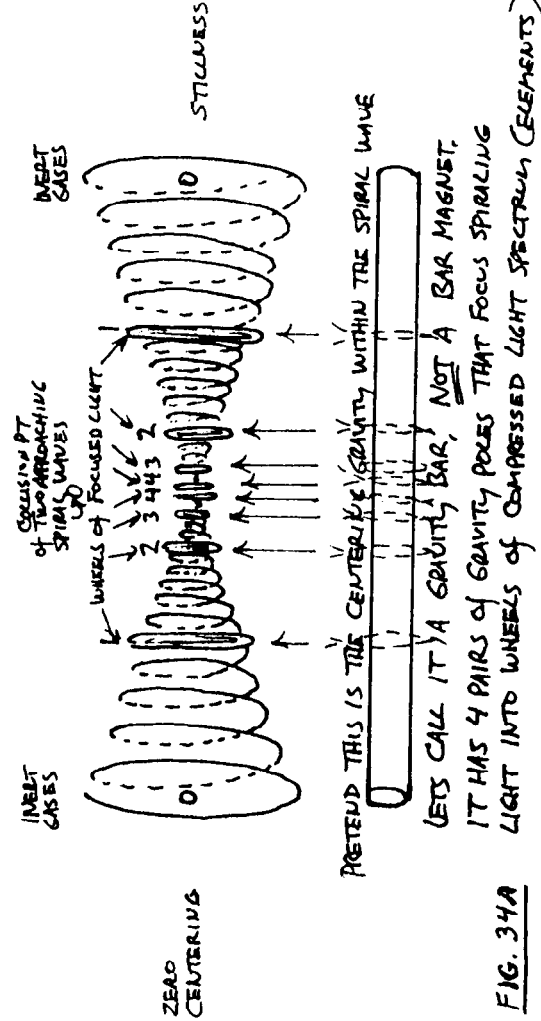 INERT
GASES
COLLISION PT
of TWO APPROACHING
SPIRAL WAVES
INERT
GASES
WHEELS of FOCUSED LIGHT
1 2 3 4 4 3 2 1
0 0
ZERO
CENTERING
STILLNESS
PRETEND THIS IS THE CENTERING GRAVITY WITHIN THE SPIRAL WAVE
LETS CALL IT A GRAVITY BAR, NOT A BAR MAGNET.
IT HAS 4 PAIRS of GRAVITY POLES THAT FOCUS SPIRALING
LIGHT INTO WHEELS of COMPRESSED LIGHT SPECTRUM (ELEMENTS)
FIG. 34A